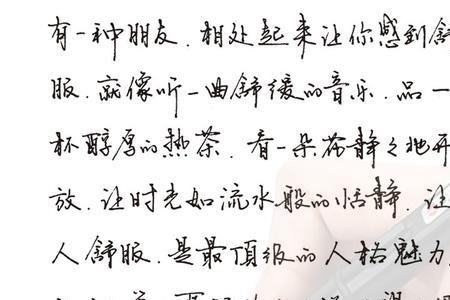 有一种朋友.相处起来让你感到舒
服.就像听一曲舒缓的音乐.品一
杯醇厚的热茶.看一朵花静之地开
放.让时光如流水般的恬静.让
人舒服.是最顶级的人格魅力